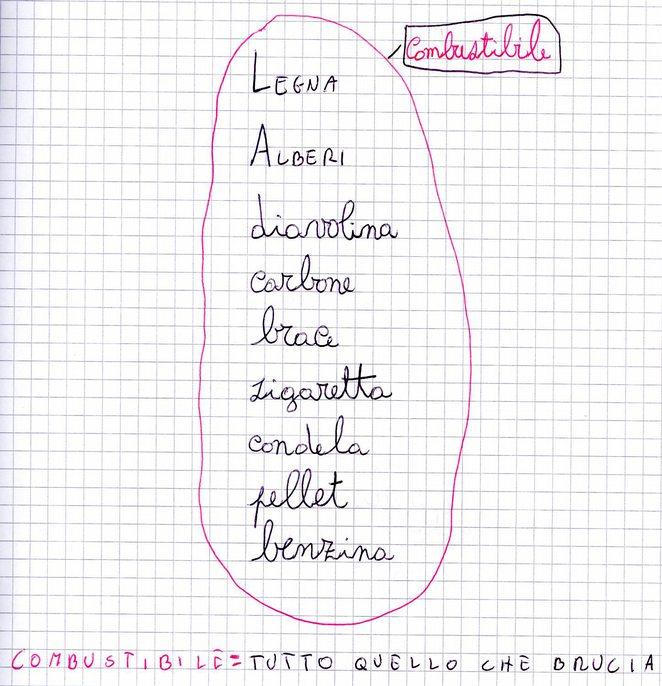 Combustibile
LEGNA
ALBERI
diavolina
carbone
brace
sigaretta
candela
pellet
benzina
COMBUSTIBILE = TUTTO QUELLO CHE BRUCIA